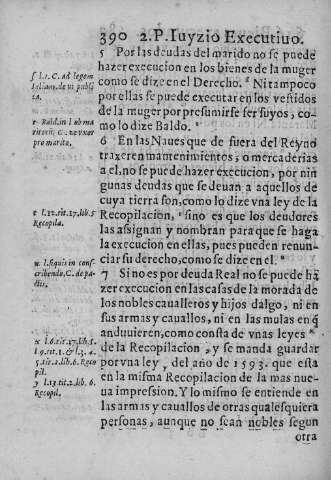 390 2. P. Iuyzio Executiuo.
5 Por las deudas del marido no se puede
hazer execucion en los bienes de la muger
como se dize en el Derecho. ſ Ni tampoco
por ellas se puede executar en los vestidos
de la muger por presumirse ser suyos, co-
mo lo dize Baldo. t
6 En las Naues que de fuera del Reyno
traxeren mantenimientos, o mercaderias
a el, no se puede hazer execucion, por nin
gunas deudas que se deuan a aquellos de
cuya tierra son, como lo dize vna ley de la
Recopilacion, t sino es que los deudores
las assignan y nombran para que se haga
la execucion en ellas, pues pueden renun-
ciar su derecho, como se dize en el. u
7 Si no es por deuda Real no se puede ha
zer execucion en las casas de la morada de
los nobles caualleros y hijos dalgo, ni en
sus armas y cauallos, ni en las mulas en q̃
anduuieren, como consta de vnas leyes x
de la Recopilacion, y se manda guardar
por vna ley y del año de 1593. que està
en la misma Recopilacion de la mas nue-
ua impression. Y lo mismo se entiende en
las armas y cauallos de otras qualesquiera
personas, aunque no sean nobles segun
otra
ſ l. 1. C. ad legem
Iuliam, de vi publi
ca.
r Bald. in l. ob ma
ritorũ, C. ne vxor
pro marito.
t l. 22. tit. 17. lib. 5
Recopila.
u l. si quis in cons-
cribendo, C. de pa-
ctis.
x l. 6. tit. 17. lib. 5.
l. 9. tit. 1. & l. 3. 4.
5. tit. 2. lib. 6. Reco
pil.
y l. 13. tit. 2. lib. 6.
Recopil.